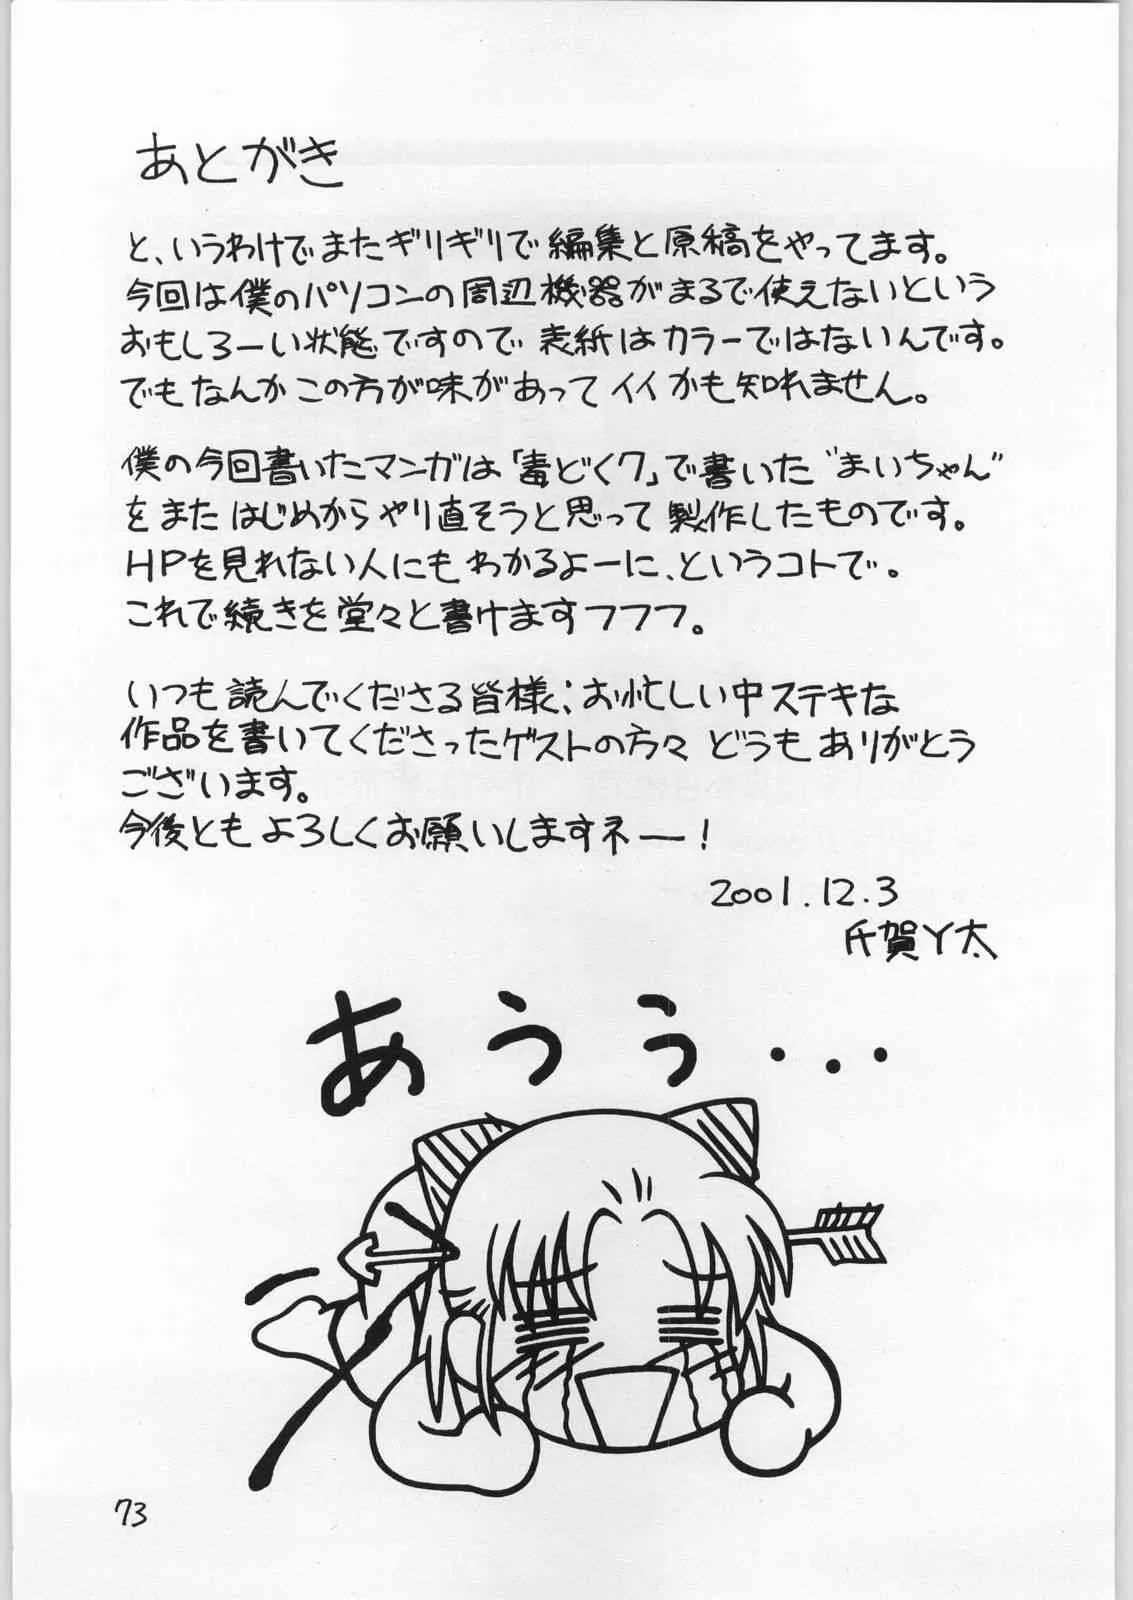 あとがき
と、いうわけでまたギリギリで編集と原稿をやってます。
今回は僕のパソコンの周辺機器がまるで使えないという
おもしろーい状態ですので表紙はカラーではないんです。
でもなんかこの方が味があってイイかも知れません。
僕の今回書いたマンガは「毒どく7」で書いた“まいちゃん”
をまたはじめからやり直そうと思って製作したものです。
HPを見れない人にもわかるよーに、というコトで。
これで続きを堂々と書けますフフフ。
いつも読んでくださる皆様、お忙しい中ステキな
作品を書いてくださったゲストの方々どうもありがとう
ございます。
今後ともよろしくお願いしますネー!
2001.12.3
氏賀Y太
あうう・・・
73